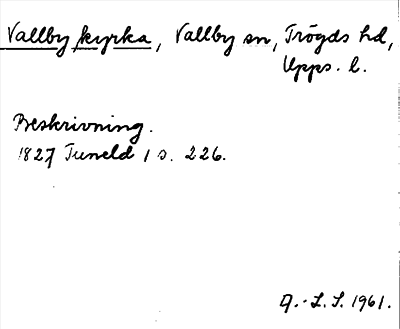 Vallby kyrka, Vallby sn, Trögds hd,
Upps. l.
Beskrivning.
1827 Tuneld 1 s. 226.
A.-L.S. 1961.